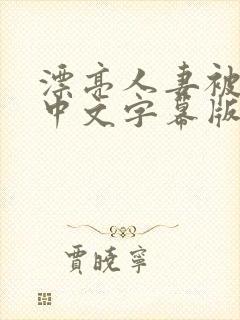 漂亮人妻被
中文字幕版
贾晓宁